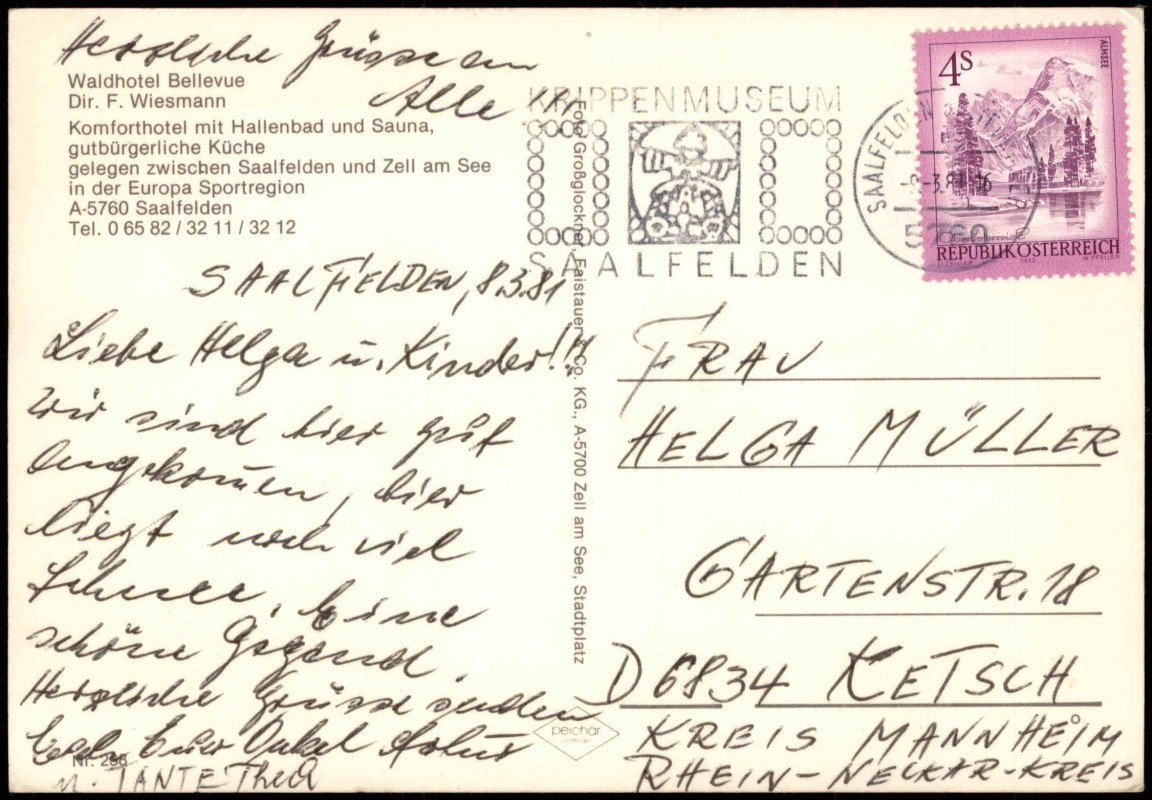 Herzliche Grüsse an
Alle !!!
Waldhotel Bellevue
Dir. F. Wiesmann
Komforthotel mit Hallenbad und Sauna,
gutbürgerliche Küche
gelegen zwischen Saalfelden und Zell am See
in der Europa Sportregion
A-5760 Saalfelden
Tel. 0 65 82 / 32 11 / 32 12
SAALFELDEN, 8.3.81
Liebe Helga u. Kinder!!!
Wir sind hier gut
angekommen, hier
liegt noch viel
Schnee, Eine
schöne Gegend.
Herzliche Grüsse senden
Euch Euer Onkel
u. TANTE Thea
Nr. 298
Foto Großglockner, Faistauer & Co. KG., A-5700 Zell am See, Stadtplatz
peichär
KRIPPENMUSEUM
SAALFELDEN
SAALFELDEN
-8.-3.81-16
5760
4S
ALMSEE
REPUBLIK ÖSTERREICH
1973
FRAU
HELGA MÜLLER
GARTENSTR. 18
D 6834 KETSCH
KREIS MANNHEIM
RHEIN-NECKAR-KREIS